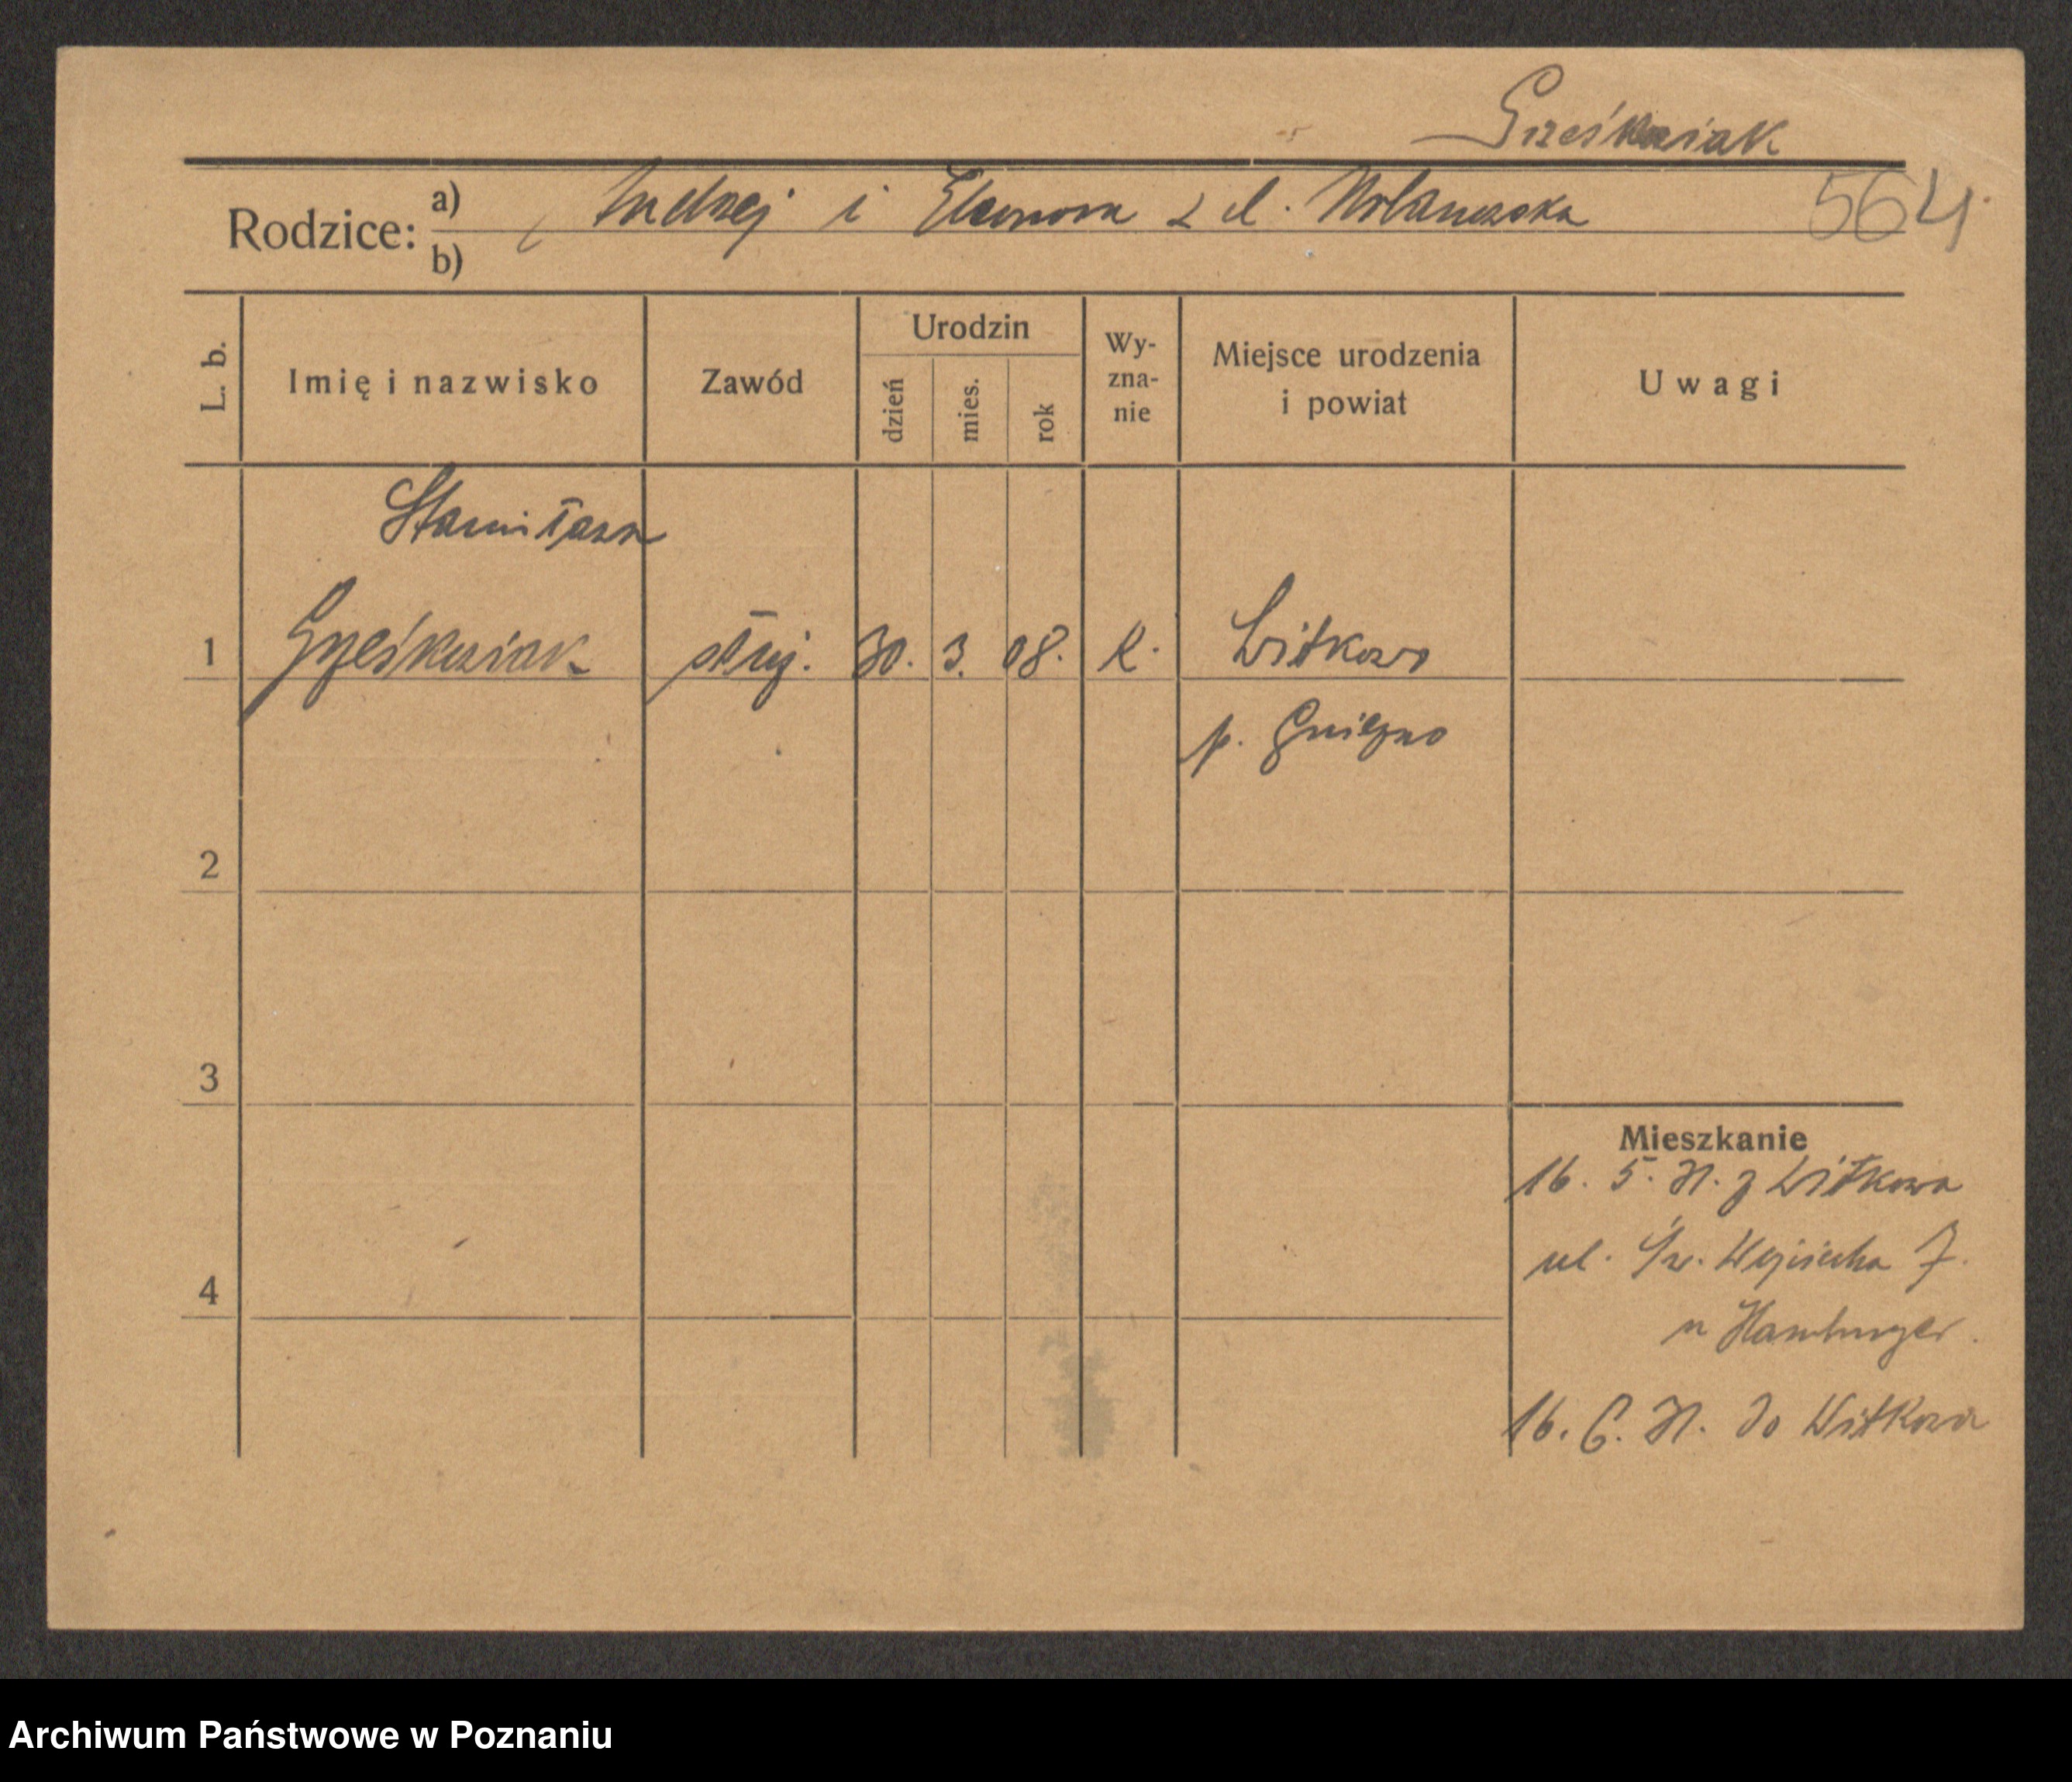 Grześkowiak
Rodzice: a) Andrzej i Eleonora z d. Urbanowska 564
b)
L. b. Imię i nazwisko Zawód Urodzin dzień mies. rok Wy-zna-nie Miejsce urodzenia i powiat Uwagi
Stanisława
1 Grześkowiak służ. 30. 3. 08. k. Witkowo
p. Gniezno
2
3
Mieszkanie
16. 5. 31. z Witkowa
ul. Św. Wojciecha 7.
4
u Hamburger.
16. 6. 31. do Witkowa
Archiwum Państwowe w Poznaniu